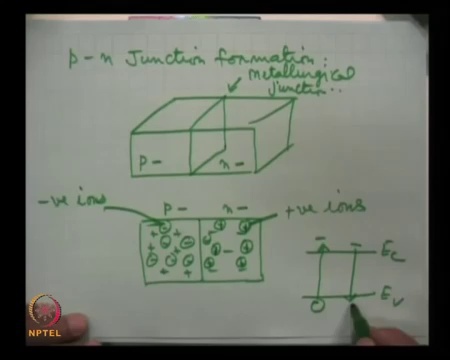 p-n Junction formation:
metallurgical
junction..
p- n-
p- n-
-ve ions
+ve ions
Ec
Ev
NPTEL